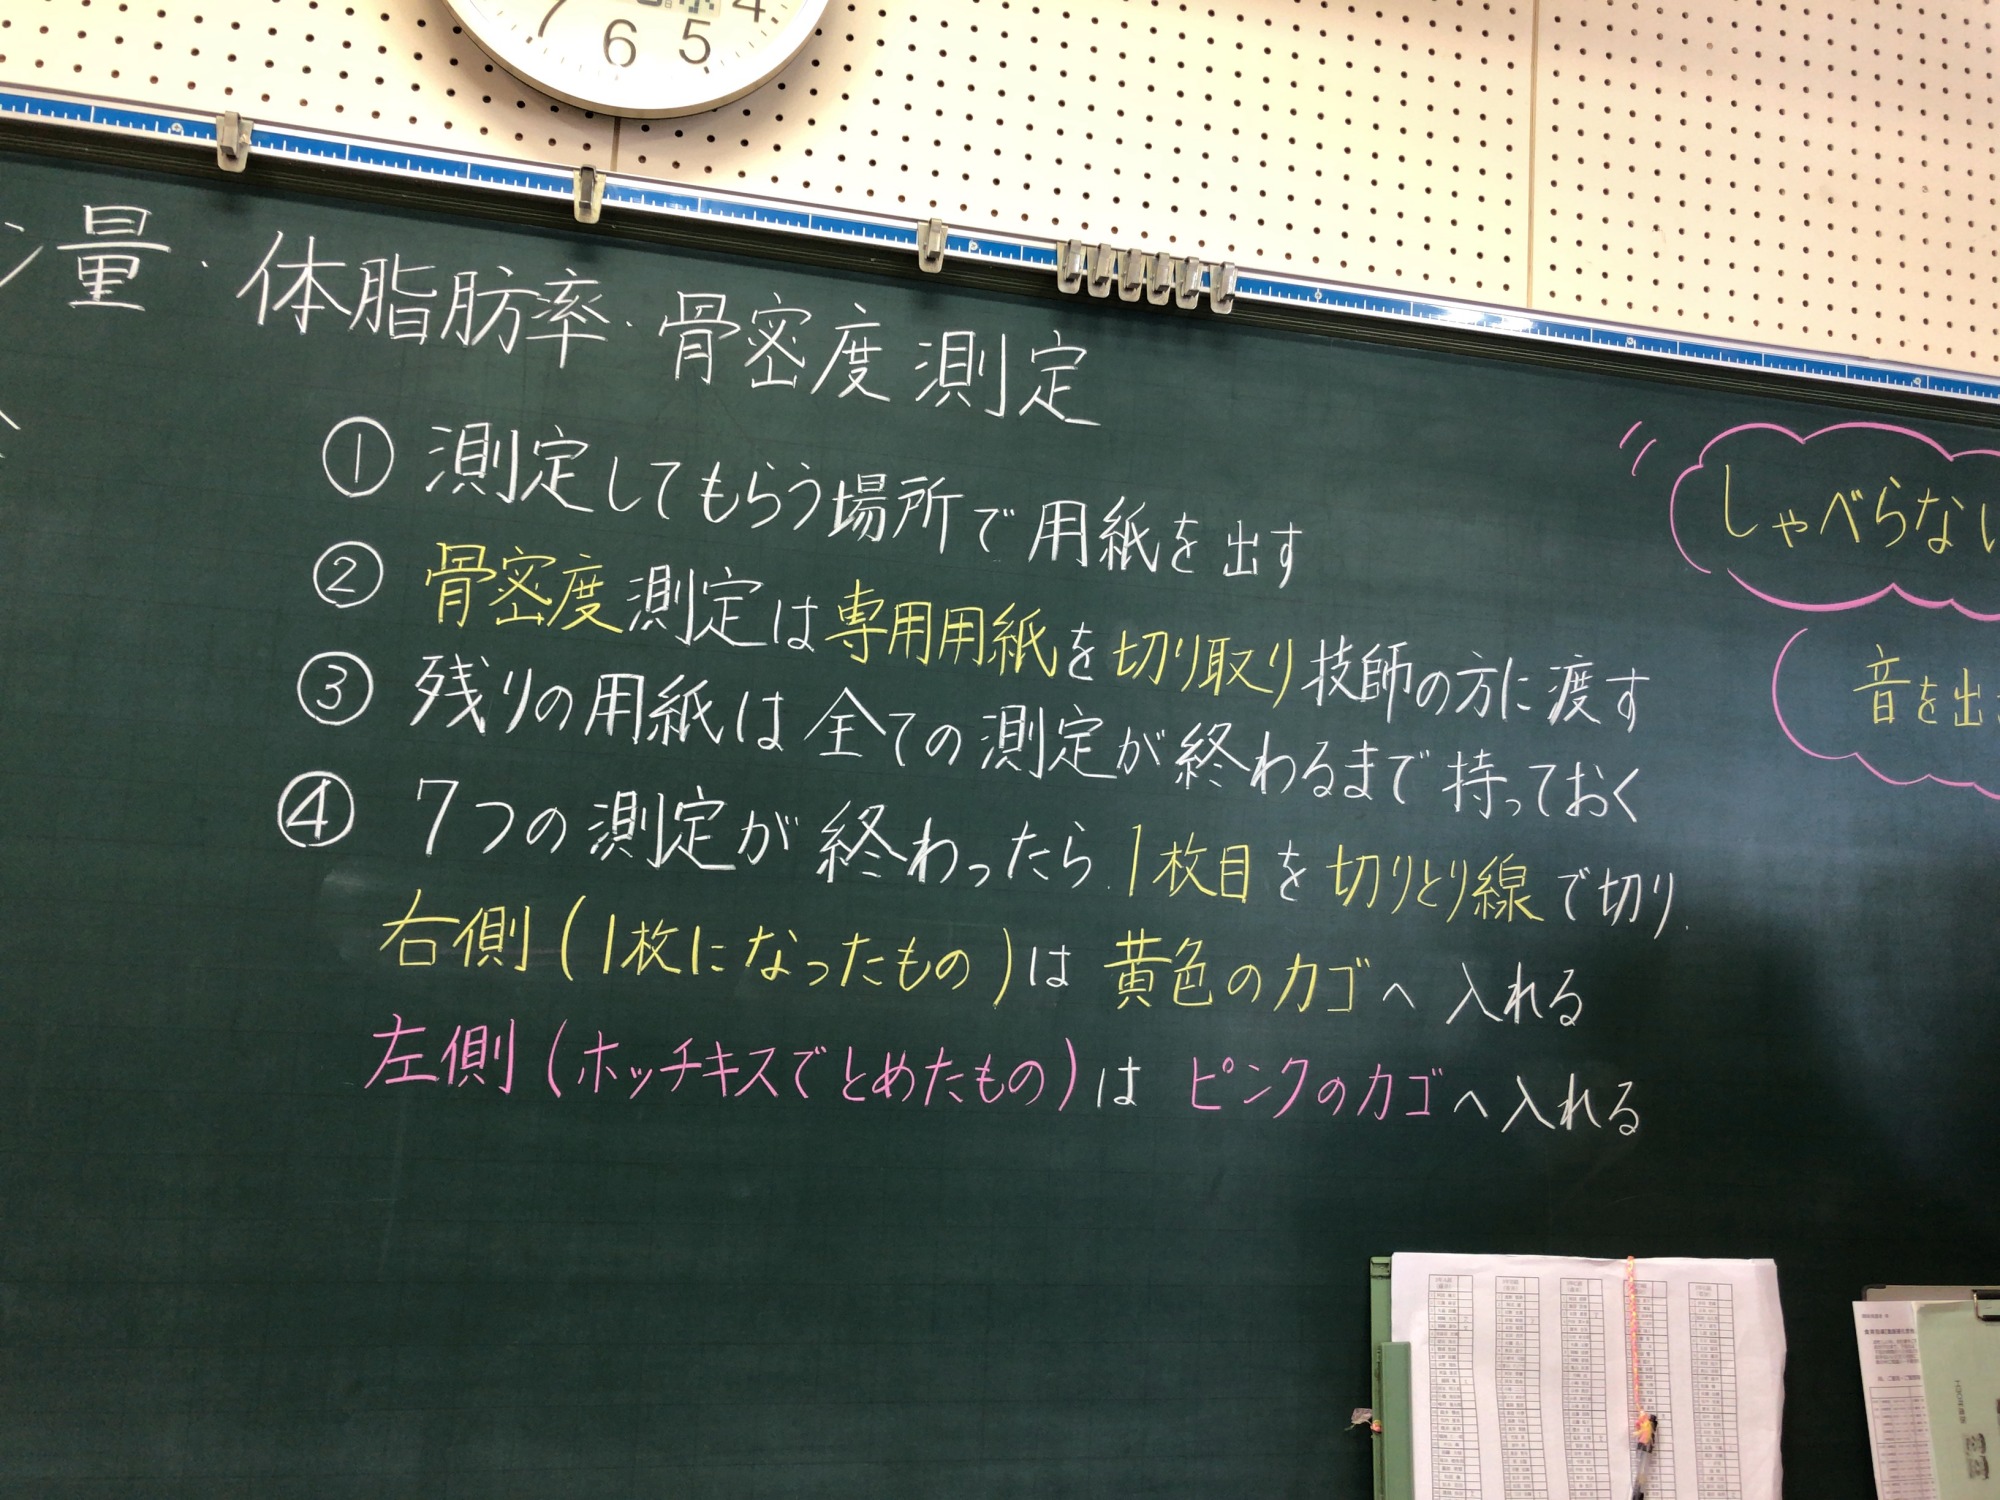 7 6 5 4
ン量・体脂肪率・骨密度測定
① 測定してもらう場所で用紙を出す
② 骨密度測定は専用用紙を切り取り技師の方に渡す
③ 残りの用紙は全ての測定が終わるまで持っておく
④ 7つの測定が終わったら、1枚目を切りとり線で切り、
右側(1枚になったもの)は黄色のカゴへ入れる
左側(ホッチキスでとめたもの)はピンクのカゴへ入れる
しゃべらない
音を出さ